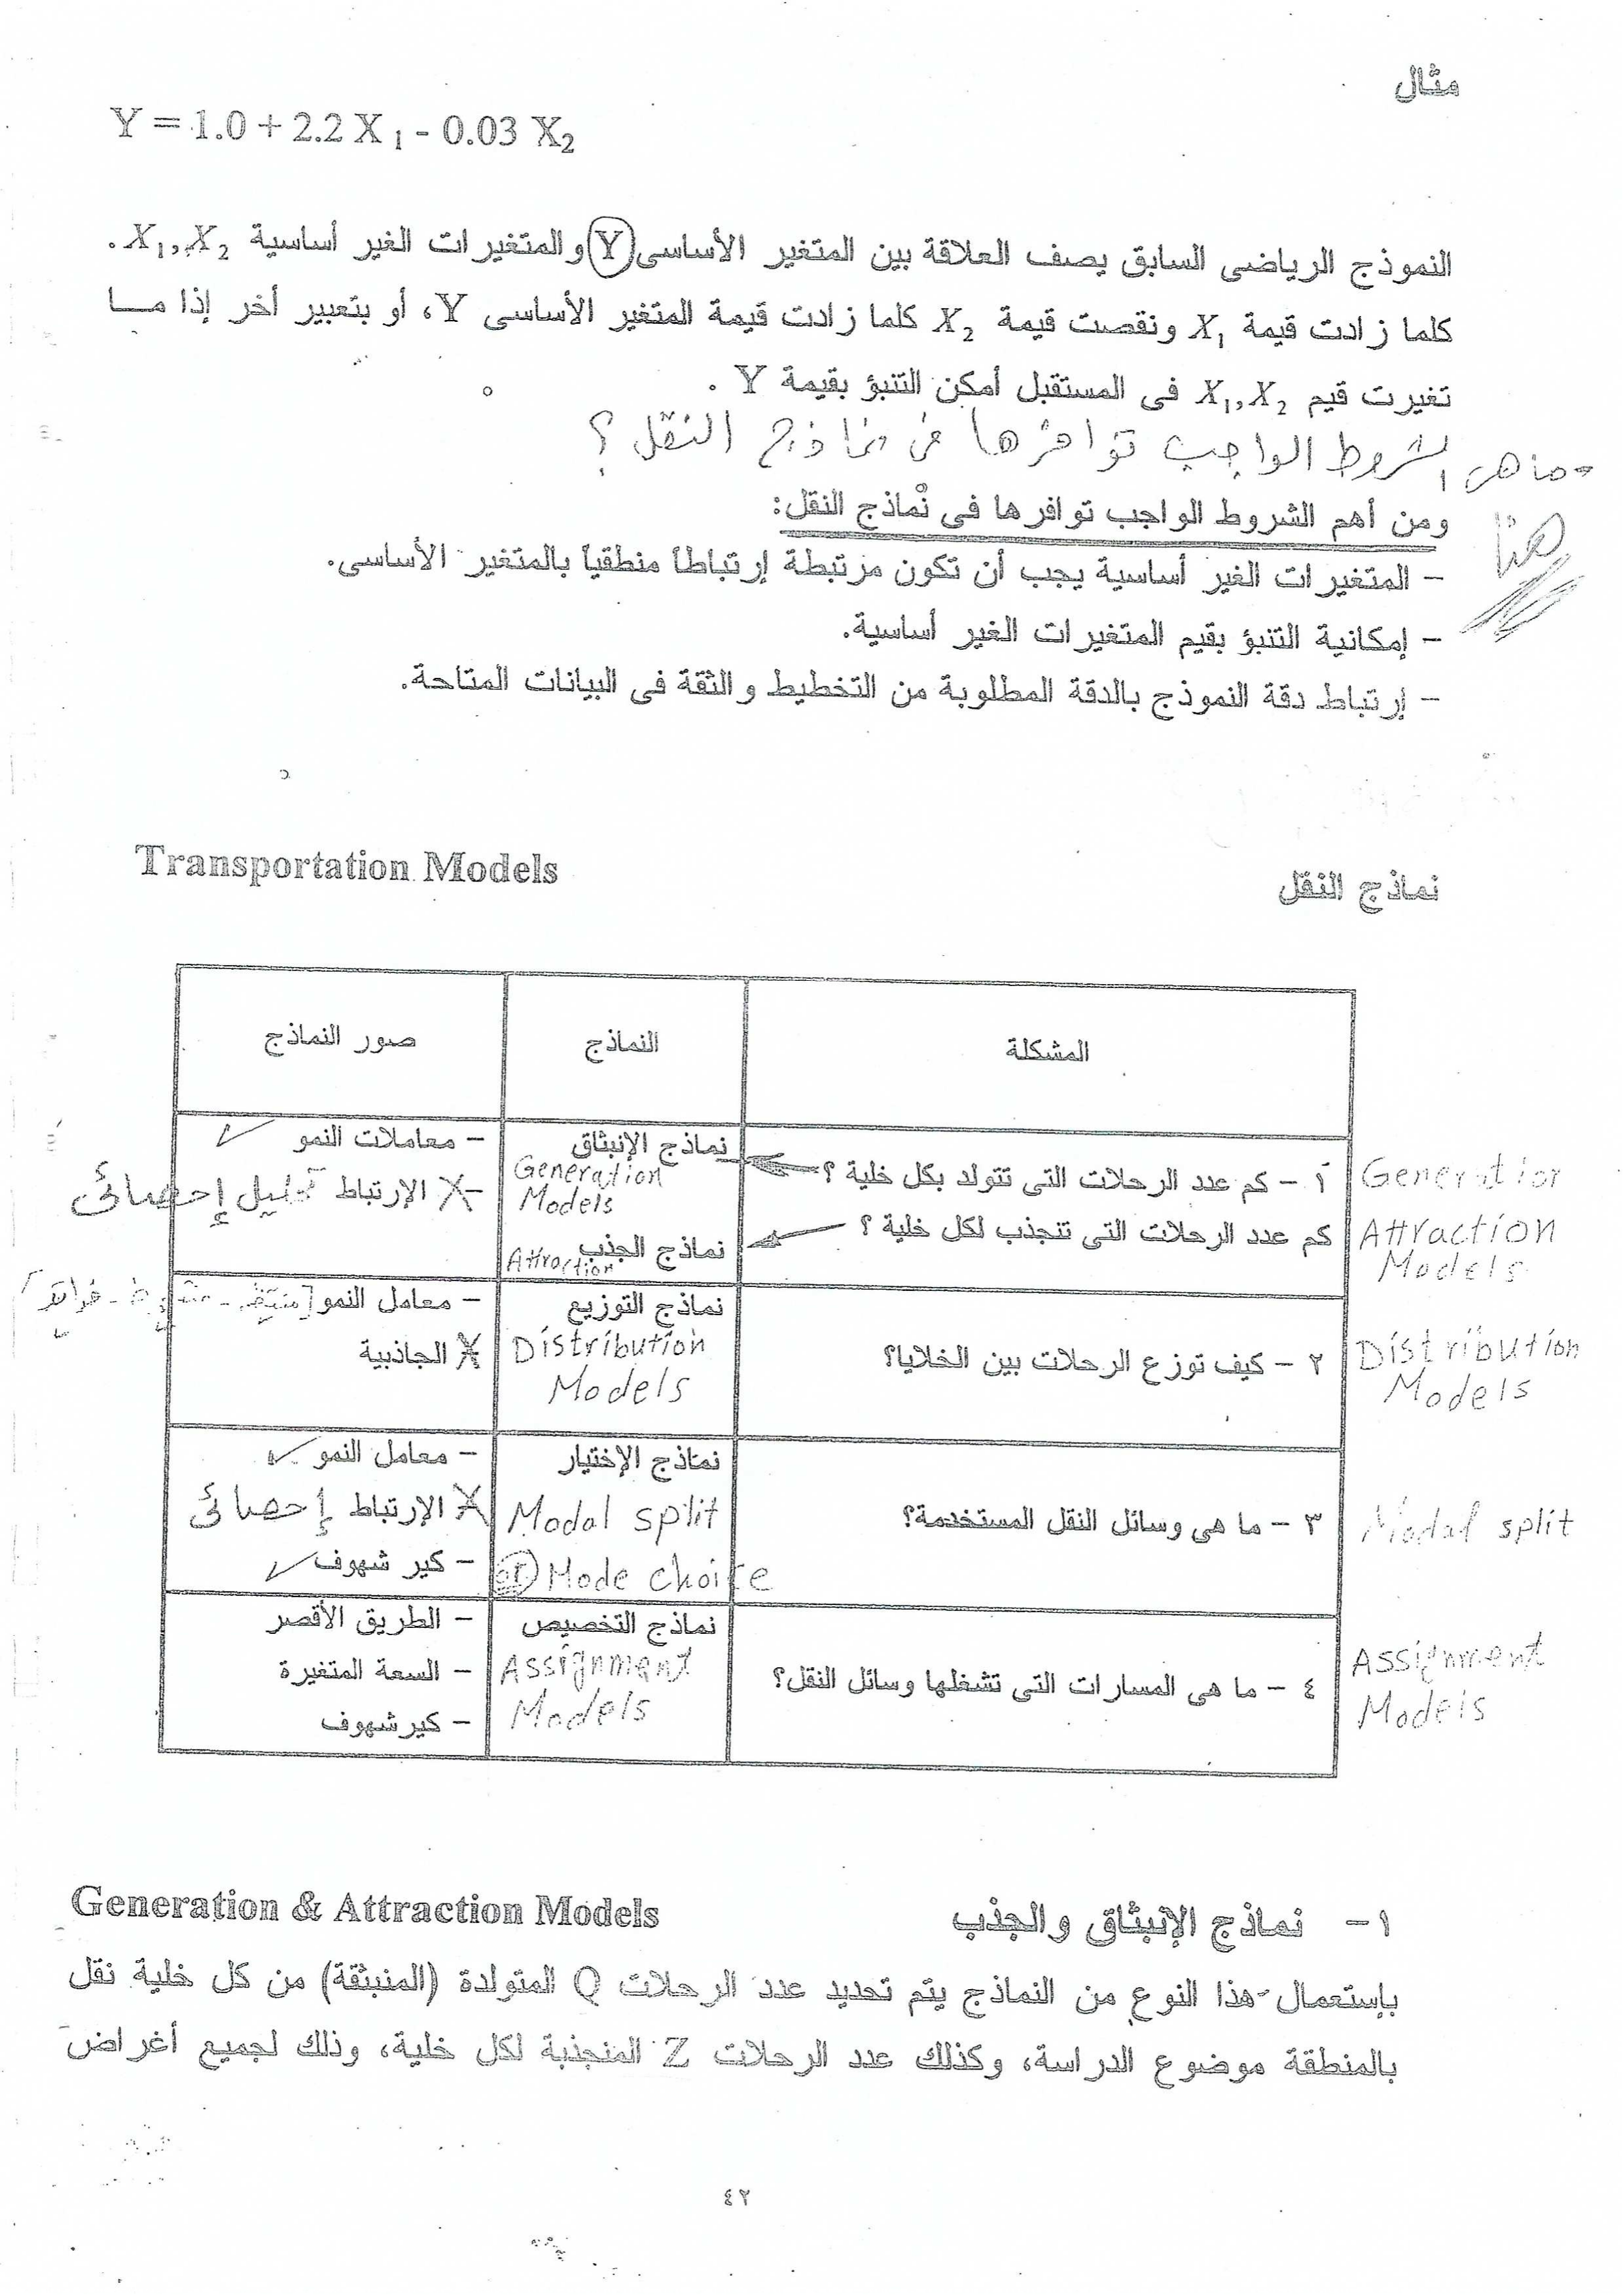 مثال
Y = 1.0 + 2.2 X1 - 0.03 X2
النموذج الرياضى السابق يصف العلاقة بين المتغير الأساسى (Y) والمتغيرات الغير أساسية X1, X2 .
كلما زادت قيمة X1 ونقصت قيمة X2 كلما زادت قيمة المتغير الأساسى Y، أو بتعبير أخر إذا ما
تغيرت قيم X1, X2 فى المستقبل أمكن التنبؤ بقيمة Y .
- ماهى الشروط الواجب توافرها فى نماذج النقل ؟
ومن أهم الشروط الواجب توافرها فى نماذج النقل:
هنا
- المتغيرات الغير أساسية يجب أن تكون مرتبطة إرتباطاً منطقياً بالمتغير الأساسى.
- إمكانية التنبؤ بقيم المتغيرات الغير أساسية.
- إرتباط دقة النموذج بالدقة المطلوبة من التخطيط والثقة فى البيانات المتاحة.
نماذج النقل
Transportation Models
المشكلة
النماذج
صور النماذج
Generation
Attraction
Models
١ - كم عدد الرحلات التى تتولد بكل خلية ؟
كم عدد الرحلات التى تنجذب لكل خلية ؟
نماذج الإنبثاق
Generation
Models
نماذج الجذب
Attraction
- معاملات النمو
- الإرتباط تحليل إحصائى
Distribution
Models
٢ - كيف توزع الرحلات بين الخلايا؟
نماذج التوزيع
Distribution
Models
- معامل النمو
الجاذبية
Modal split
٣ - ما هى وسائل النقل المستخدمة؟
نماذج الإختيار
Modal split
or Mode choice
- معامل النمو
الإرتباط إحصائى
- كير شهوف
Assignment
Models
٤ - ما هى المسارات التى تشغلها وسائل النقل؟
نماذج التخصيص
Assignment
Models
- الطريق الأقصر
- السعة المتغيرة
- كيرشهوف
١- نماذج الإنبثاق والجذب
Generation & Attraction Models
بإستعمال هذا النوع من النماذج يتم تحديد عدد الرحلات Q المتولدة (المنبثقة) من كل خلية نقل
بالمنطقة موضوع الدراسة، وكذلك عدد الرحلات Z المنجذبة لكل خلية، وذلك لجميع أغراض
٤٢